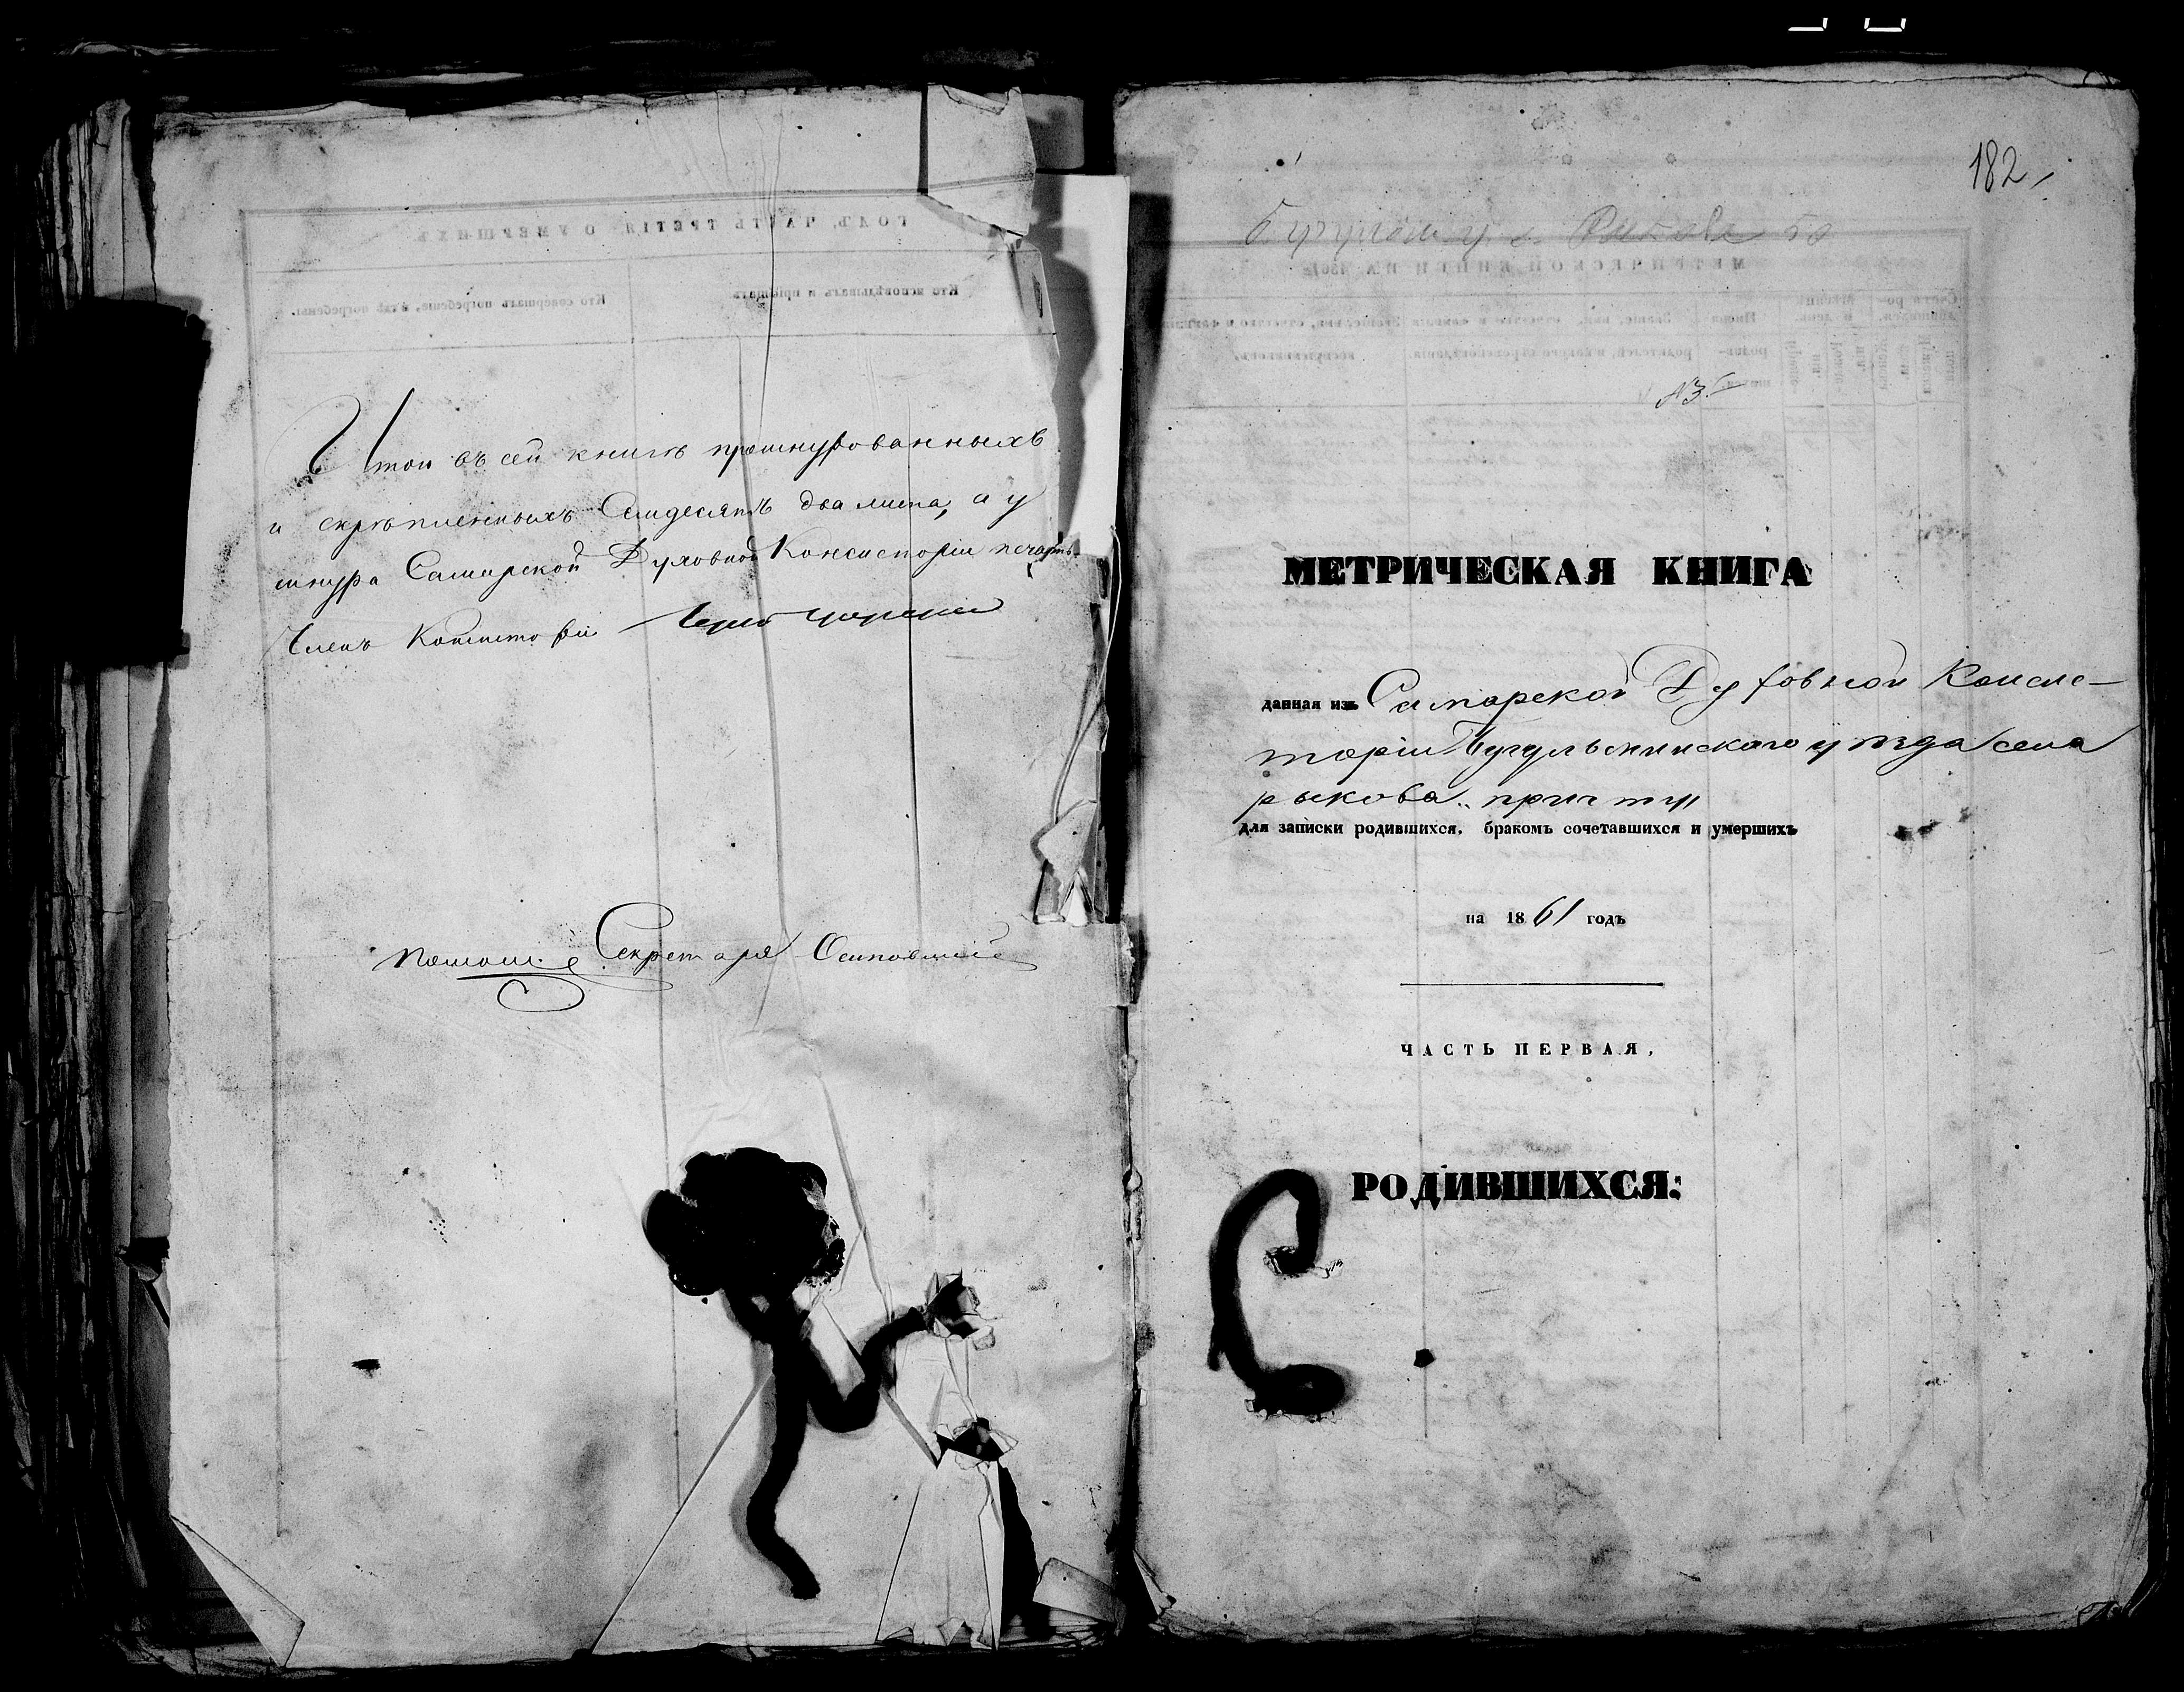 Итого въ сей книгѣ прошнурованныхъ
и скрѣпленныхъ Семдесятъ два листа, а у
шнура Самарской Духовной Консисторіи печать.
Членъ Консисторіи
Помощ. Секретаря Осиповскій
182
Бугульм. у. с. Рыкова
№3.
МЕТРИЧЕСКАЯ КНИГА
данная изъ Самарской Духовной Консис-
торіи Бугульминскаго уѣзда села
Рыкова.. причту
для записки родившихся, бракомъ сочетавшихся и умершихъ
на 1861 годъ
ЧАСТЬ ПЕРВАЯ,
РОДИВШИХСЯ: